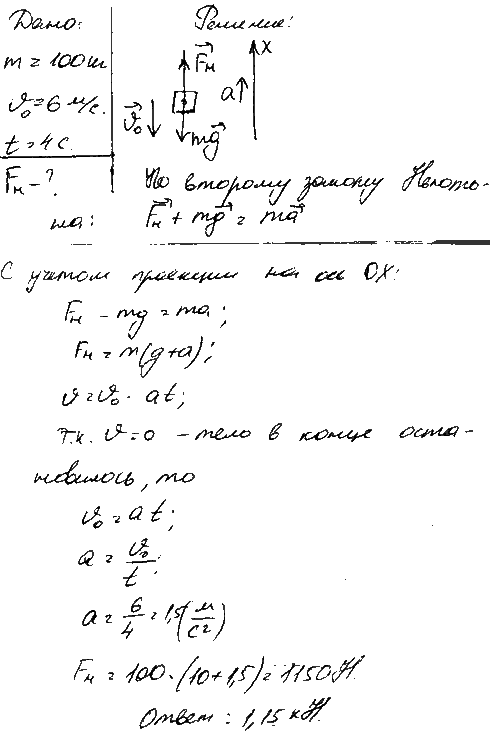 Дано:
m = 100 кг
υ₀ = 6 м/с.
t = 4 с.
Fн - ?
Решение:
X
Fн
a
υ₀
mg
По второму закону Ньюто-
на: Fн + mg = ma
С учетом проекции на ось OX:
Fн - mg = ma;
Fн = m(g+a);
υ = υ₀ - at;
т.к. υ=0 - тело в конце оста-
новилось, то
υ₀ = at;
a = υ₀/t;
a = 6/4 = 1,5 (м/с²)
Fн = 100·(10+1,5) = 1150 Н.
Ответ: 1,15 кН.